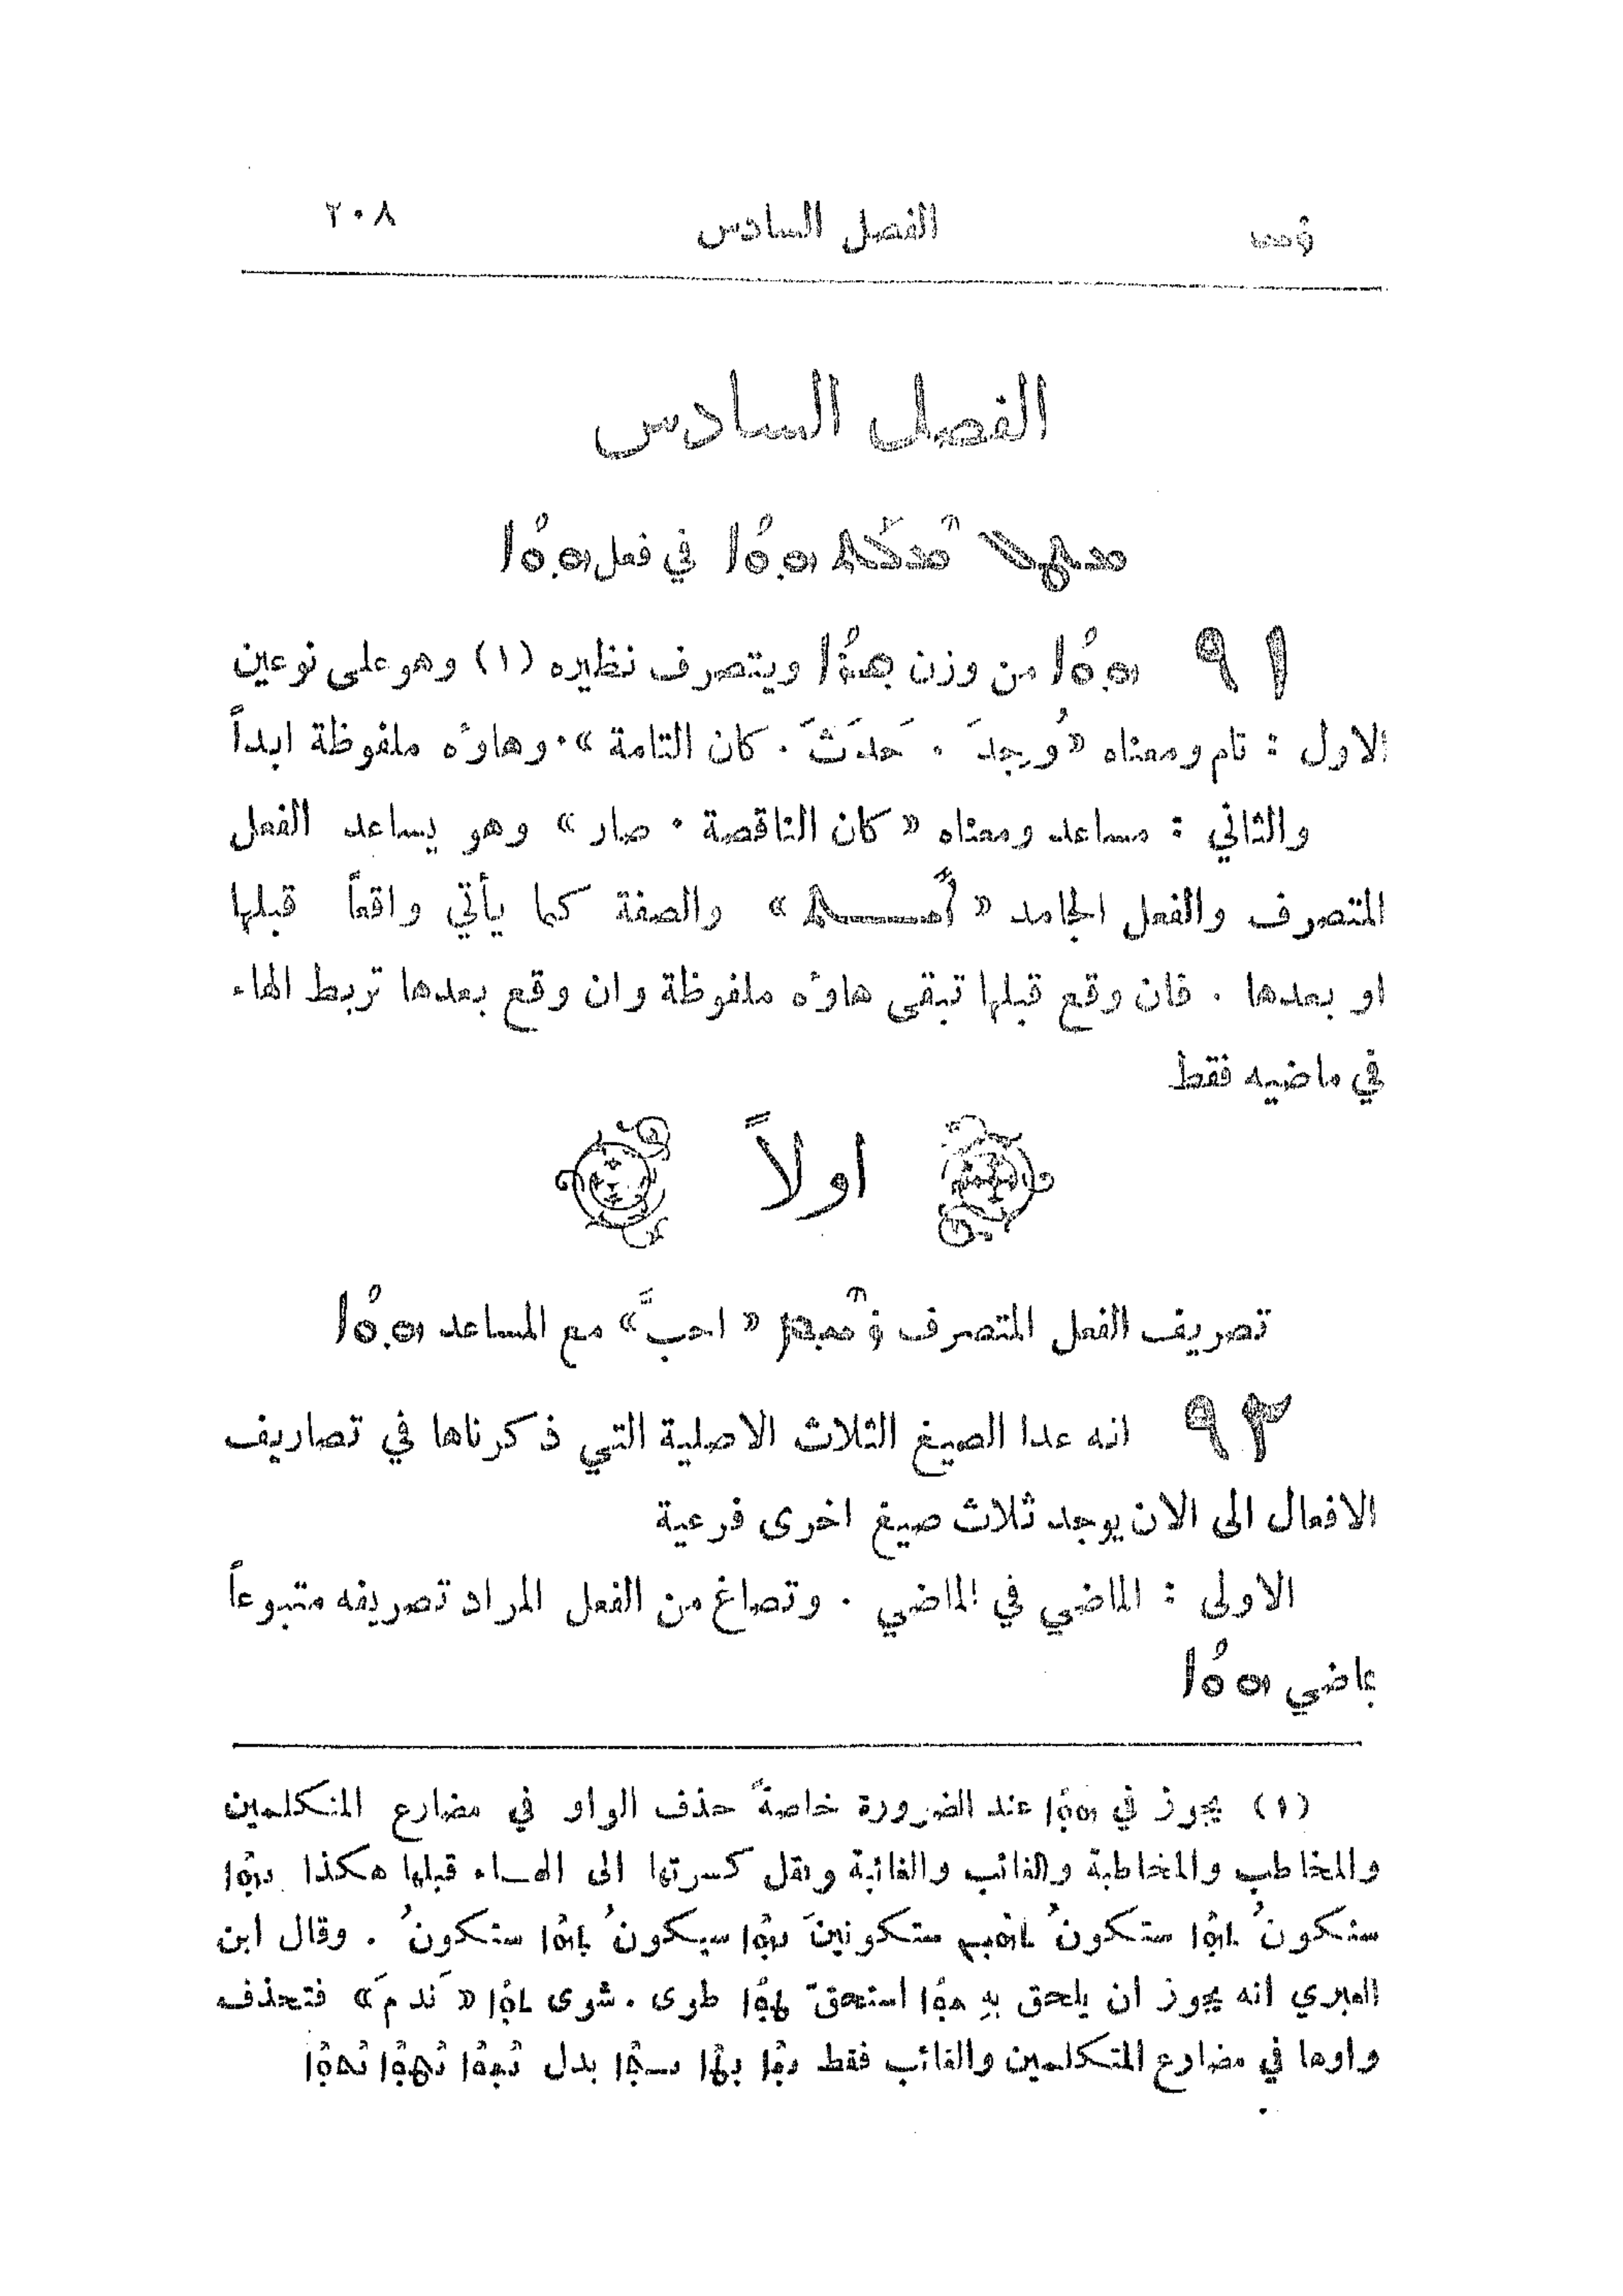 ٢٠٨ الفصل السادس ܪܚ
الفصل السادس
ܡܛܠ ܡܠܬ ܗܘܐ في فعل ܗܘܐ
٩١ ܗܘܐ من وزن ويتصرف نظيره (١) وهو على نوعين
الاول : تام ومعناه «وُجِدَ . حَدَثَ . كان التامة». وهاوُه ملفوظة ابداً
والثاني : مساعد ومعناه « كان الناقصة . صار » وهو يساعد الفعل
المتصرف والفعل الجامد « ܐܝܬ » والصفة كما يأتي واقعاً قبلها
او بعدها . فان وقع قبلها تبقى هاوُه ملفوظة وان وقع بعدها تربط الهاء
في ماضيه فقط
اولاً
تصريف الفعل المتصرف ܪܚܡ « احبَّ» مع المساعد ܗܘܐ
٩٢ انه عدا الصيغ الثلاث الاصلية التي ذكرناها في تصاريف
الافعال الى الان يوجد ثلاث صيغ اخرى فرعية
الاولى : الماضي في الماضي . وتصاغ من الفعل المراد تصريفه متبوعاً
بماضي ܗܘܐ
(١) يجوز في ܗܘܐ عند الضرورة خاصةً حذف الواو في مضارع المتكلمين
والمخاطب والمخاطبة والغائب والغائبة ونقل كسرتها الى الهاء قبلها هكذا ܢܗܐ
سنكونُ ܬܗܐ ستكونُ ܬܗܝܢ ستكونينَ ܢܗܐ سيكونُ ܬܗܐ ستكونُ . وقال ابن
العبري انه يجوز ان يلحق بهِ ܫܘܐ استحقّ ܛܘܐ طوى . شوى ܬܘܐ «نَدمَ» فتحذف
واوها في مضارع المتكلمين والغائب فقط بدل